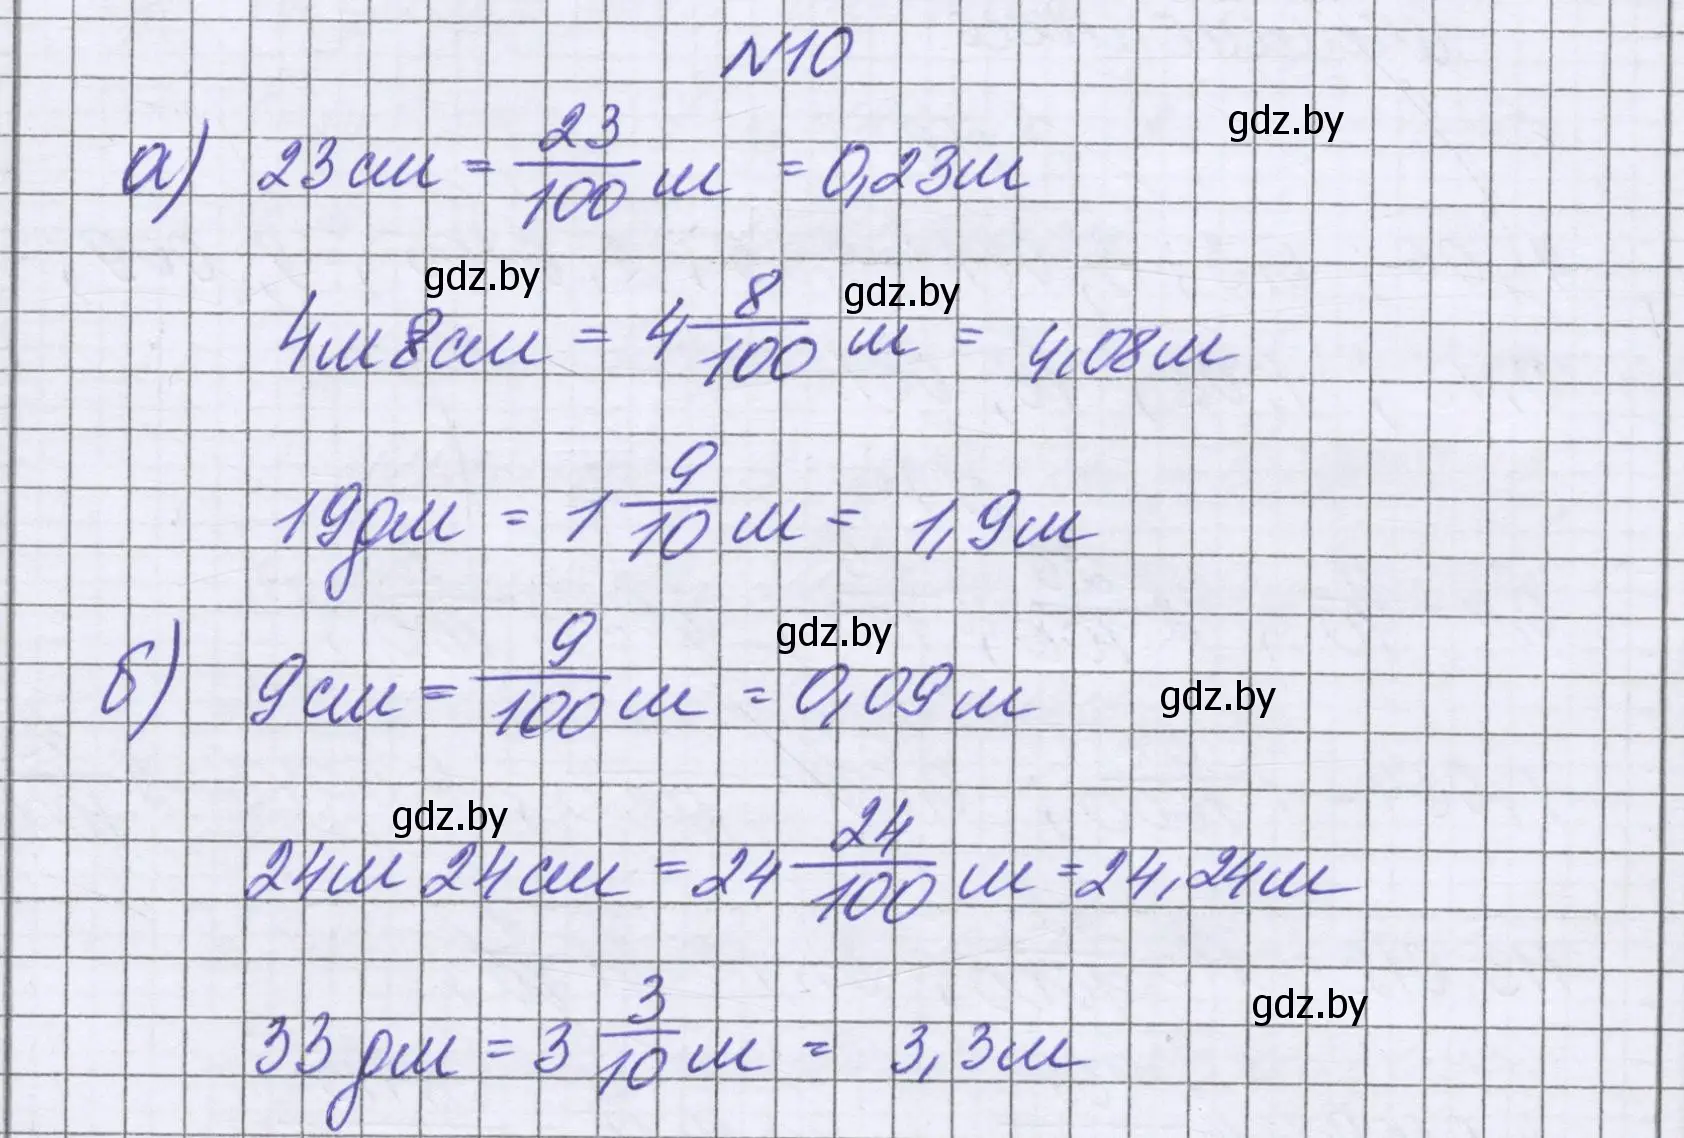 N10
gdz.by
а) 23 см = 23/100 м = 0,23 м
gdz.by gdz.by
4 м 8 см = 4 8/100 м = 4,08 м
19 дм = 1 9/10 м = 1,9 м
gdz.by
б) 9 см = 9/100 м = 0,09 м gdz.by
gdz.by
24 м 24 см = 24 24/100 м = 24,24 м
gdz.by
33 дм = 3 3/10 м = 3,3 м